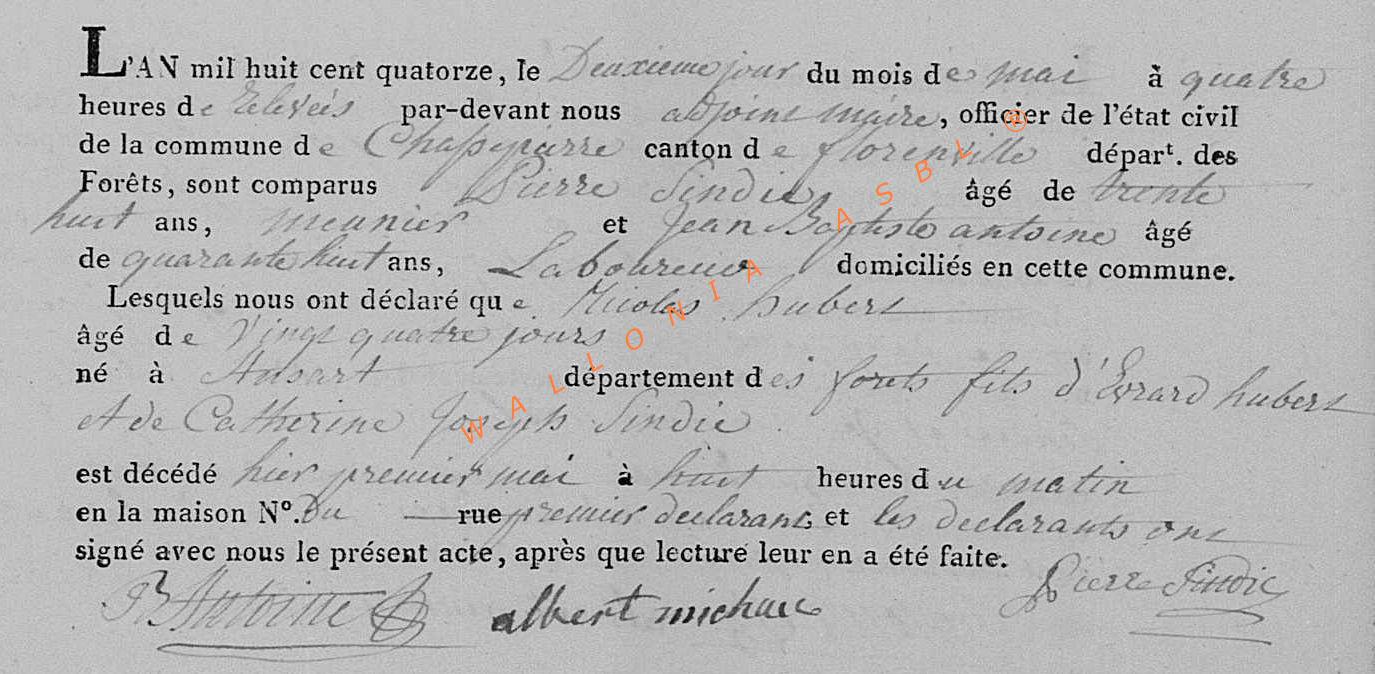 L'AN mil huit cent quatorze, le Deuxieme jour du mois de mai à quatre
heures de relevéés par-devant nous adjoint maire, officier de l'état civil
de la commune de Chassepierre canton de florenville départ. des
Forêts, sont comparus Pierre Sindic âgé de trente
huit ans, meunier et Jean Baptiste antoine âgé
de quarante huit ans, Laboureur domiciliés en cette commune.
Lesquels nous ont déclaré que Nicolas hubert
âgé de Vingt quatre jours
né à Ansart département des forets fils d'Evrard hubert
et de Catherine Joseph Sindic
est décédé hier premier mai à huit heures du matin
en la maison Nº. Du rue premier declarant, et les declarants ont
signé avec nous le présent acte, après que lecture leur en a été faite.
Antoine albert michaux Pierre Sindic
WALLONIA ASBL ®